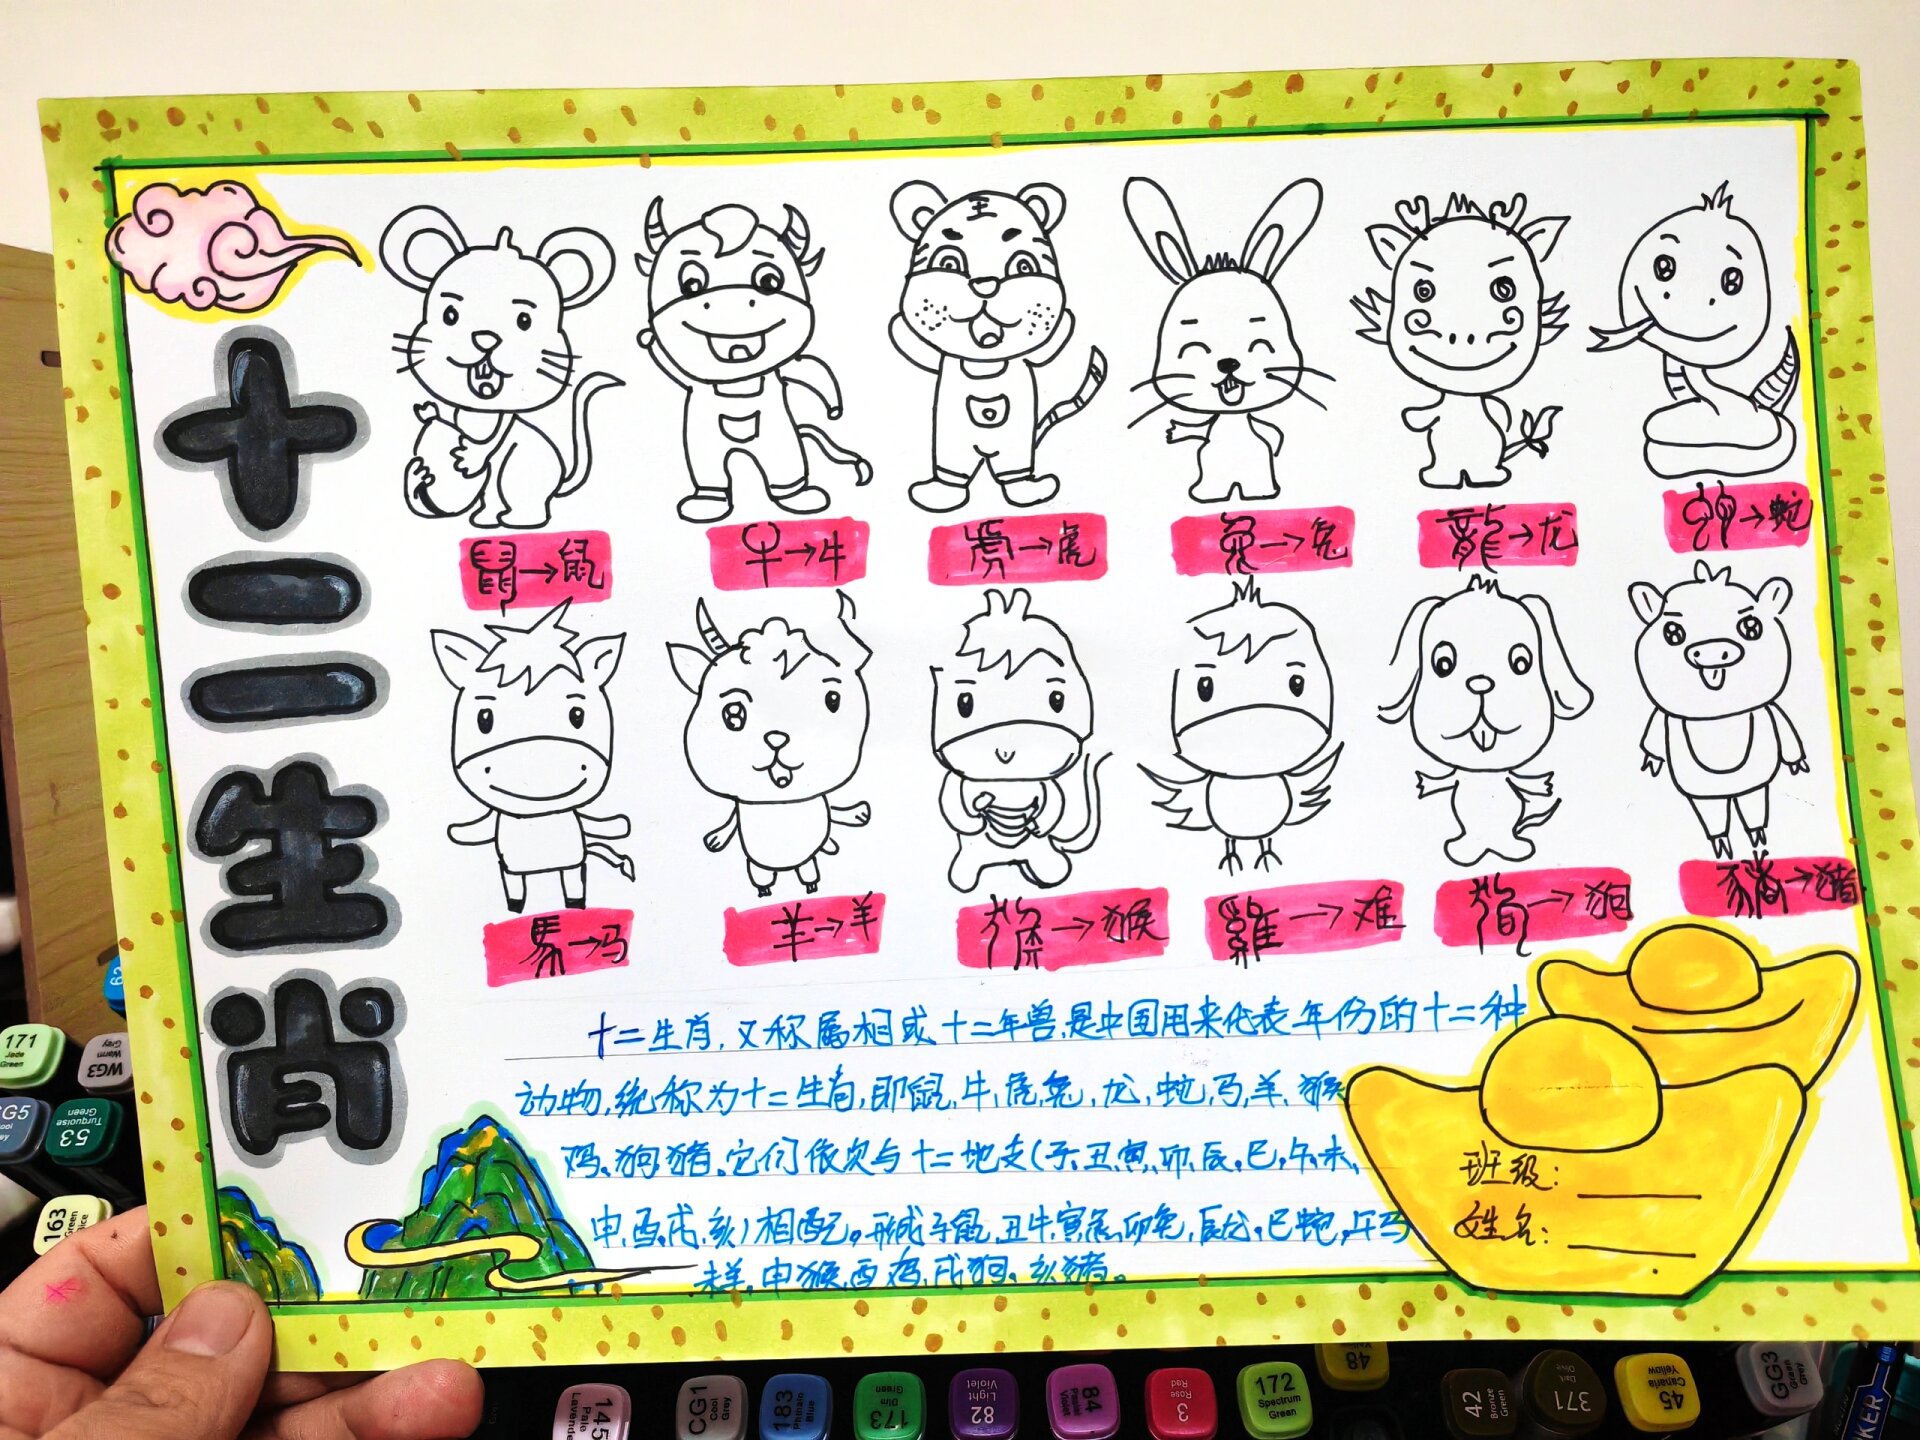 十二生肖
鼠→鼠
牛→牛
王
虎→虎
兔→兔
龍→龙
→蛇
馬→马
羊→羊
猴→猴
雞→难
狗→狗
豬→猪
十二生肖,又称属相或十二年兽,是中国用来代表年份的十二种
动物,统称为十二生肖,即鼠,牛,虎,兔,龙,蛇,马,羊,猴
鸡、狗、猪。它们依次与十二地支(子、丑、寅、卯、辰、巳、午、未、
申、酉、戌、亥)相配。形成子鼠,丑牛,寅虎,卯兔,辰龙,巳蛇,午马
未羊,申猴,酉鸡,戌狗、亥猪。
班级:
姓名:
171 Jade Green
WG3 Warm Grey
CG5
53 Turquoise Green
163
145 Pale Lavender
CG1 Cool Grey
183 Phthalo Blue
173 Dim Green
82 Light Violet
84 Pastel Violet
3 Rose Red
172 Spectrum Green
48
42 Bronze Green
371 Dark Olive
45 Canaria Yellow
GG3 Green Grey